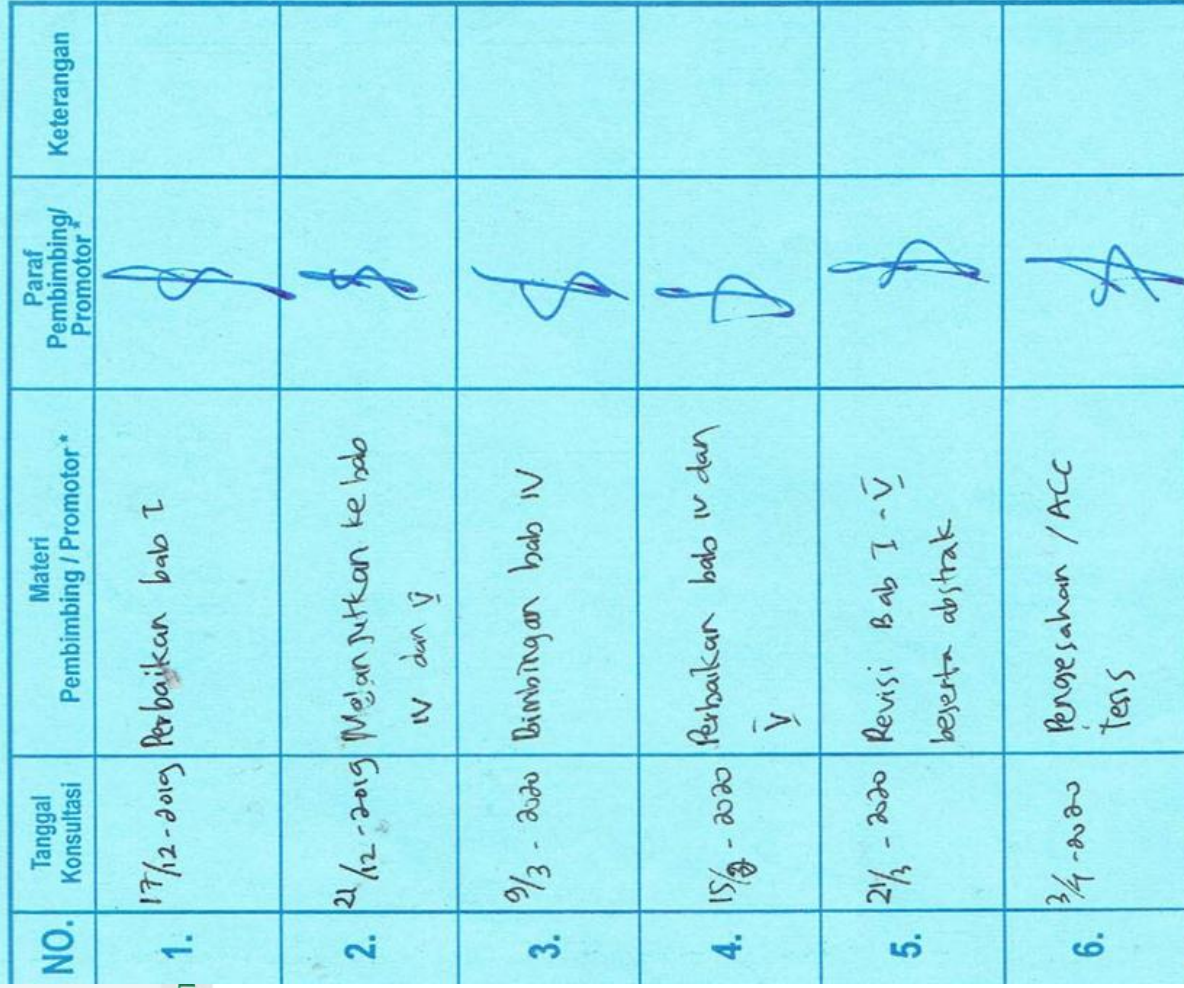 NO.
Tanggal
Konsultasi
Materi
Pembimbing / Promotor*
Paraf
Pembimbing/
Promotor*
Keterangan
1.
17/12-2019
Perbaikan bab I
2.
21/12-2019
Melanjutkan ke bab
IV dan V
3.
9/3 - 2020
Bimbingan bab IV
4.
15/3 - 2020
Perbaikan bab IV dan
V
5.
21/3 - 2020
Revisi Bab I - V
beserta abstrak
6.
3/4 - 2020
Pengesahan / ACC
tesis